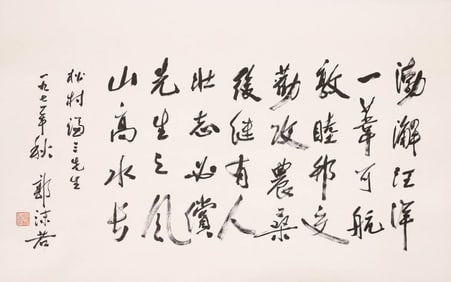 渤澥汪洋
一葦可航
敦睦邦交
勸攻農桑
後继有人
壮志必償
先生之风
山高水长
松村謙三先生
一九七一年秋 郭沫若